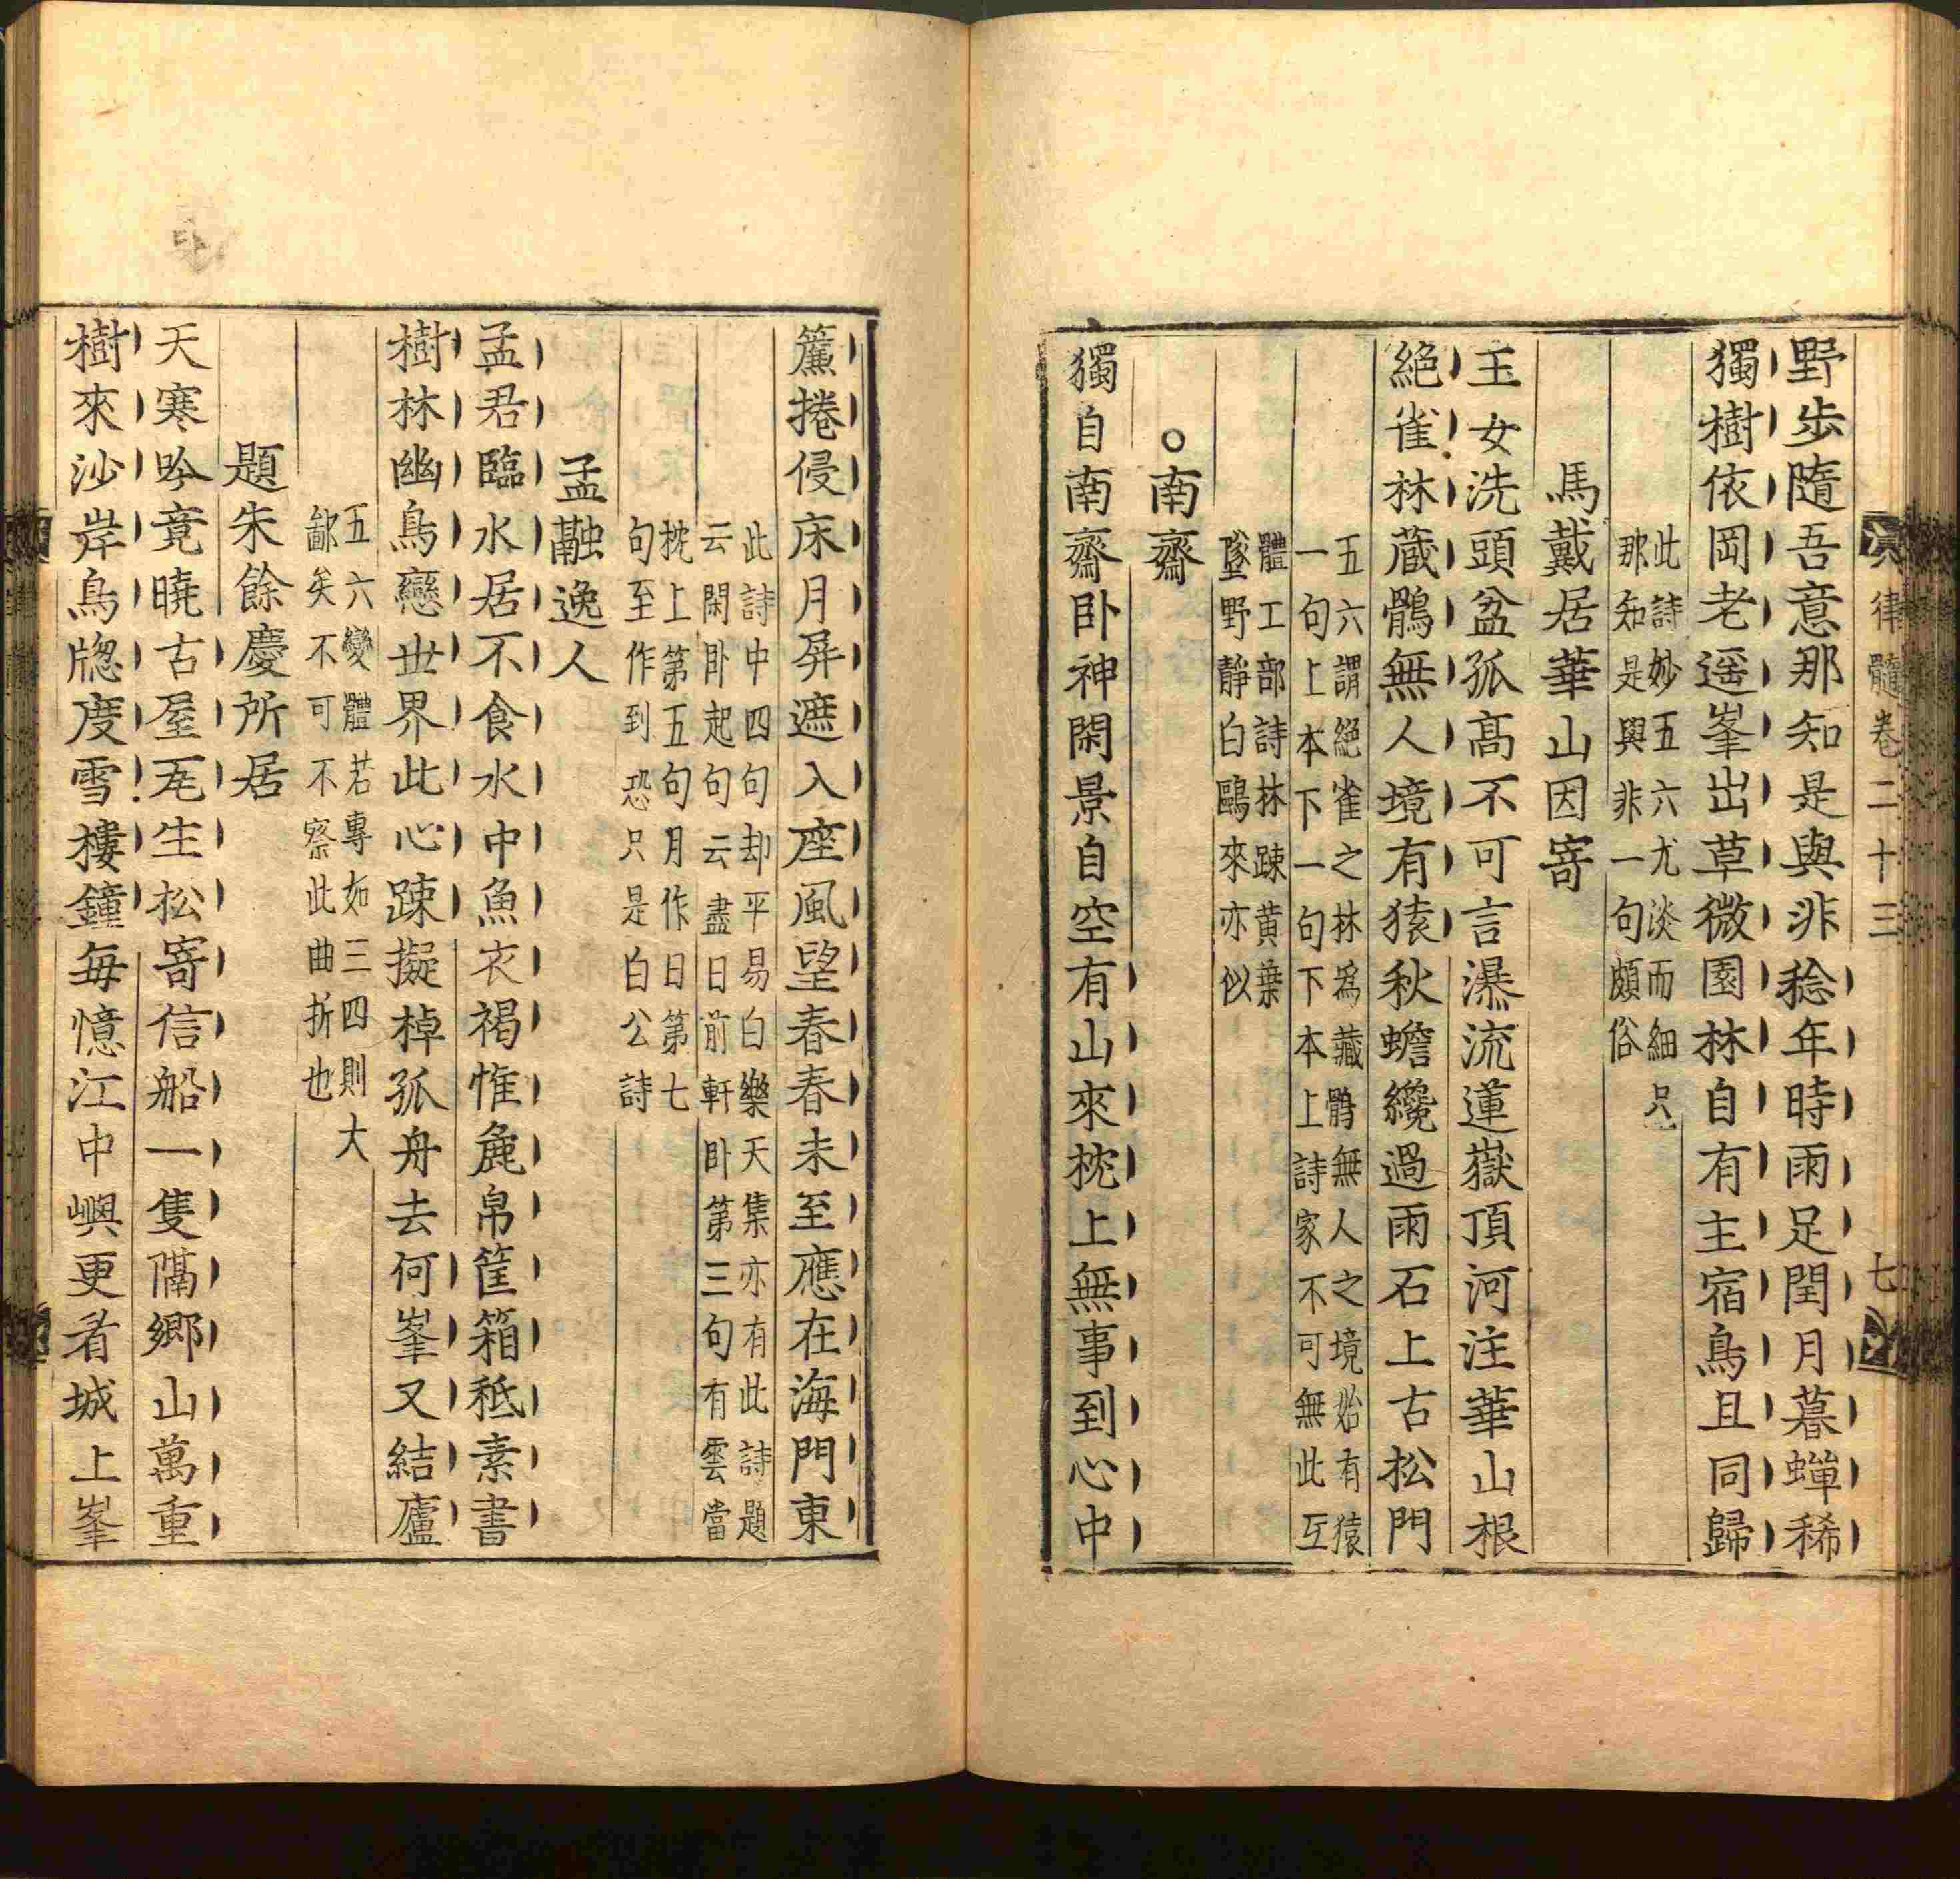 律髓卷二十三
七
野步隨吾意那知是與非稔年時雨足閏月暮蟬稀
獨樹依岡老遥峯出草微園林自有主宿鳥且同歸
此詩妙五六尤淡而細只
那知是與非一句頗俗
馬戴居華山因寄
玉女洗頭盆孤髙不可言瀑流蓮嶽頂河注華山根
絶雀林蔵鶻無人境有猿秋蟾纔過雨石上古松門
五六謂絕雀之林爲藏鶻無人之境始有猿
一句上本下一句下本上詩家不可無此互
體工部詩林踈黃葉
墜野靜白鷗來亦似
○南齋
獨自南齋卧神閑景自空有山來枕上無事到心中
簾捲侵床月屏遮入座風望春春未至應在海門東
此詩中四句却平易白樂天集亦有此詩題
云閑卧起句云盡日前軒卧第三句有雲當
枕上第五句月作日第七
句至作到恐只是白公詩
孟融逸人
孟君臨水居不食水中魚衣褐惟麁帛筐箱秪素書
樹林幽鳥戀世界此心踈擬棹孤舟去何峯又結廬
五六變體若專如三四則大
鄙矣不可不察此曲折也
題朱餘慶所居
天寒吟竟曉古屋瓦生松寄信船一隻隔鄉山萬重
樹來沙岸鳥牕度雪樓鐘每憶江中嶼更看城上峯